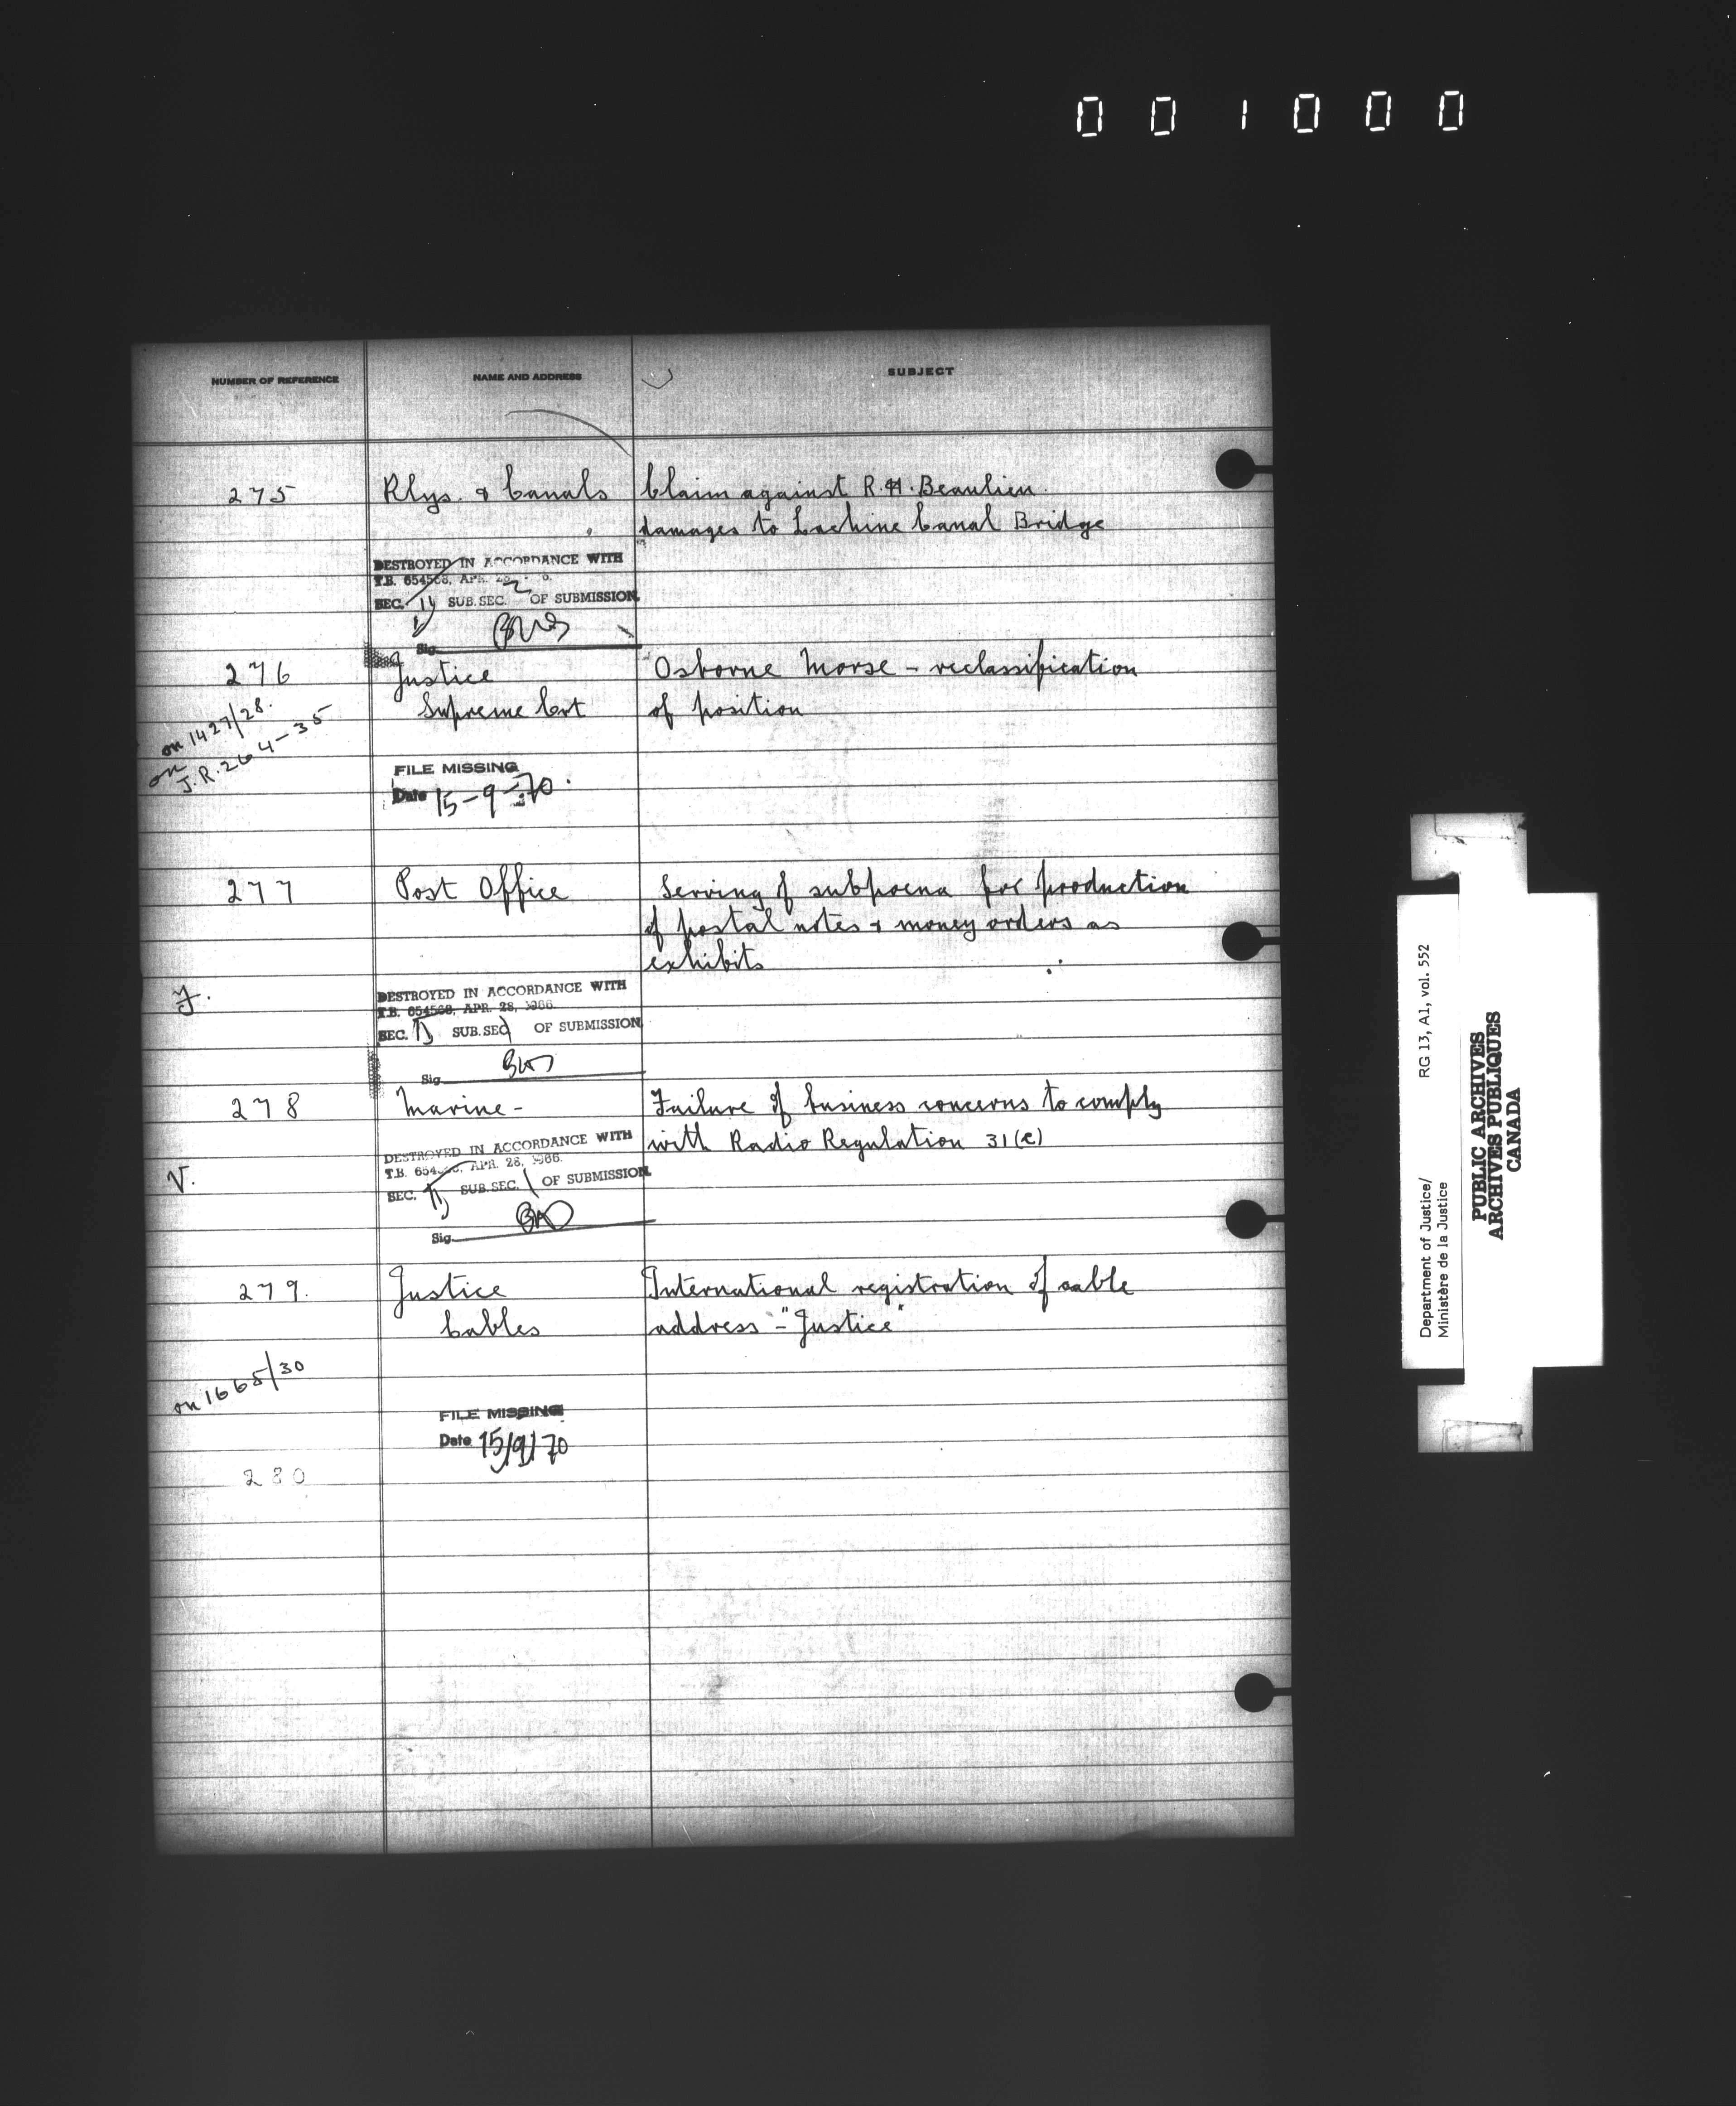 001000
NUMBER OF REFERENCE NAME AND ADDRESS SUBJECT
275 Rlys. & Canals Claim against R.H. Beaulieu.
damages to Lachine Canal Bridge
DESTROYED IN ACCORDANCE WITH
T.B. 654568, APR. 28,
SEC. SUB. SEC. 2 OF SUBMISSION
Sig.
276 Justice Osborne Morse - reclassification
Supreme Crt of position
on 1427/28.
on J.R. 264-35
FILE MISSING
Date 15-9-70.
277 Post Office Serving of subpoena for production
of postal notes & money orders as
exhibits
DESTROYED IN ACCORDANCE WITH
T.B. 654568, APR. 28, 1966
SEC. SUB. SEC. OF SUBMISSION
Sig.
278 Marine - Failure of business concerns to comply
with Radio Regulation 31(e)
DESTROYED IN ACCORDANCE WITH
T.B. 654568, APR. 28, 1966.
V.
SEC. SUB. SEC. 1 OF SUBMISSION
Sig.
279. Justice International registration of cable
Cables address - "Justice"
on 1665/30
FILE MISSING
Date 15/9/70
280
Department of Justice/ RG 13, A1, vol. 552
Ministère de la Justice
PUBLIC ARCHIVES
ARCHIVES PUBLIQUES
CANADA